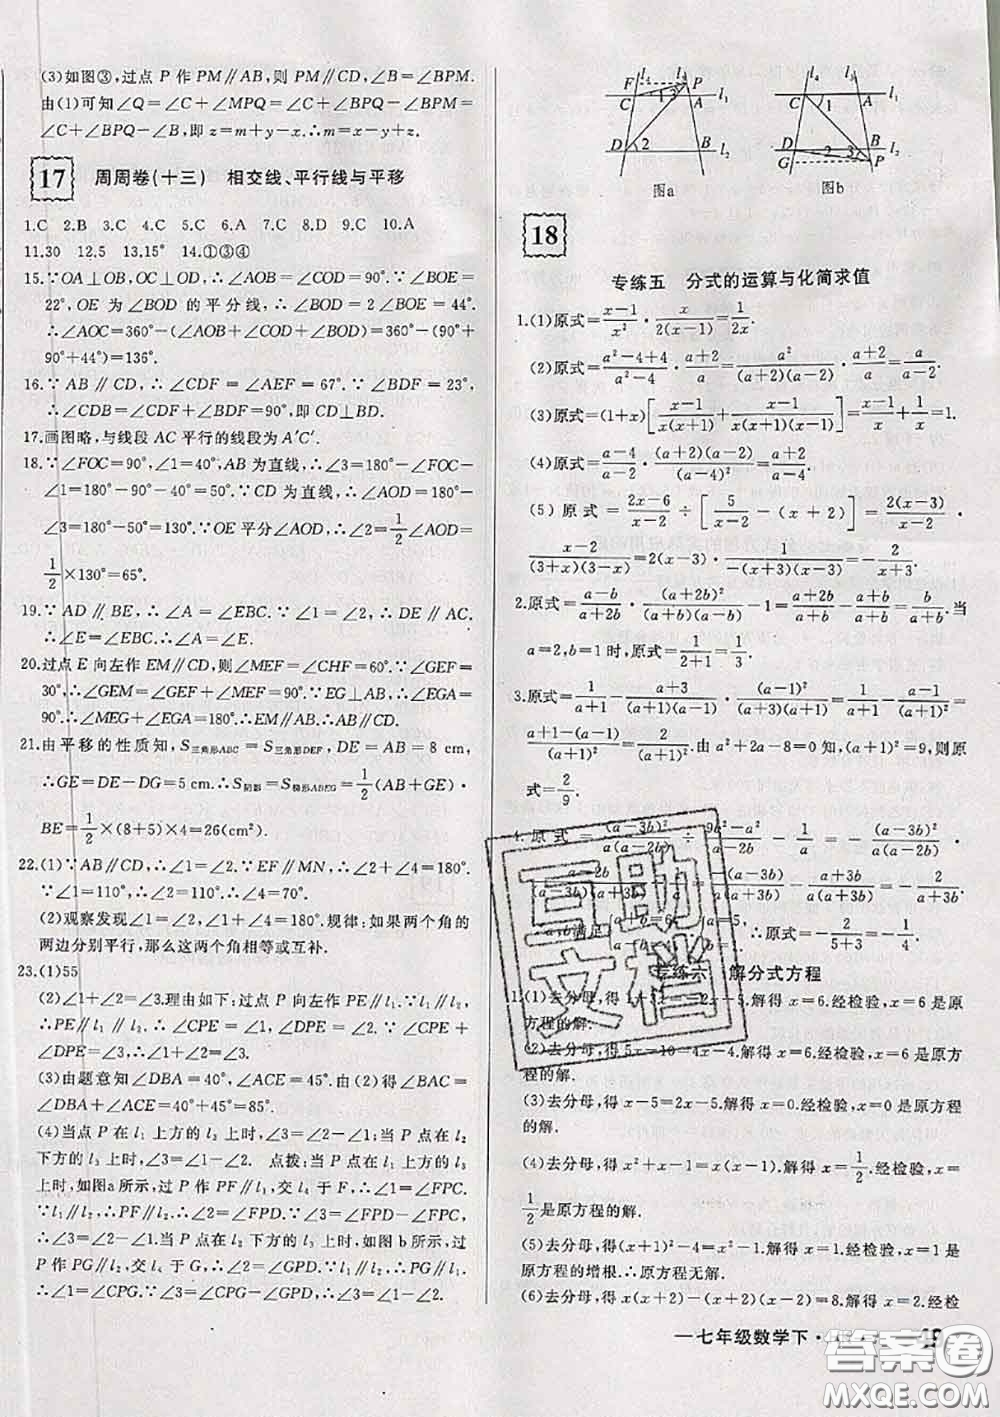 (3)如图③,过点 P 作 PM∥AB,则 PM∥CD,∠B=∠BPM.
由(1)可知∠Q=∠C+∠MPQ=∠C+∠BPQ-∠BPM=
∠C+∠BPQ-∠B,即 z=m+y-x.∴m=x-y+z.
17 周周卷(十三) 相交线、平行线与平移
1.C 2.B 3.C 4.C 5.C 6.A 7.C 8.D 9.C 10.A
11.30 12.5 13.15° 14.①③④
15.∵OA⊥OB,OC⊥OD,∴∠AOB=∠COD=90°.∵∠BOE=
22°,OE 为∠BOD 的平分线,∴∠BOD=2∠BOE=44°.
∴∠AOC=360°-(∠AOB+∠COD+∠BOD)=360°-(90°+
90°+44°)=136°.
16.∵AB∥CD,∴∠CDF=∠AEF=67°.∵∠BDF=23°,
∴∠CDB=∠CDF+∠BDF=90°,即 CD⊥BD.
17.画图略,与线段 AC 平行的线段为 A′C′.
18.∵∠FOC=90°,∠1=40°,AB 为直线,∴∠3=180°-∠FOC-
∠1=180°-90°-40°=50°.∵CD 为直线,∴∠AOD=180°-
∠3=180°-50°=130°.∵OE 平分∠AOD,∴∠2=1/2∠AOD=
1/2×130°=65°.
19.∵AD∥BE,∴∠A=∠EBC.∵∠1=∠2,∴DE∥AC.
∴∠E=∠EBC.∴∠A=∠E.
20.过点 E 向左作 EM∥CD,则∠MEF=∠CHF=60°.∵∠GEF=
30°,∴∠GEM=∠GEF+∠MEF=90°.∵EG⊥AB,∴∠EGA=
90°.∴∠MEG+∠EGA=180°.∴EM∥AB.∴AB∥CD.
21.由平移的性质知,S三角形ABC=S三角形DEF,DE=AB=8 cm,
∴GE=DE-DG=5 cm.∴S阴影=S梯形ABEG=1/2(AB+GE)·
BE=1/2×(8+5)×4=26(cm²).
22.(1)∵AB∥CD,∴∠1=∠2.∵EF∥MN,∴∠2+∠4=180°.
∵∠1=110°,∴∠2=∠1=110°.∴∠4=70°.
(2)观察发现∠1=∠2,∠1+∠4=180°.规律:如果两个角的
两边分别平行,那么这两个角相等或互补.
23.(1)55
(2)∠1+∠2=∠3.理由如下:过点 P 向左作 PE∥l₁.∵l₁∥l₂,
∴PE∥l₁∥l₂.∴∠CPE=∠1,∠DPE=∠2.∵∠CPE+
∠DPE=∠3,∴∠1+∠2=∠3.
(3)由题意知∠DBA=40°,∠ACE=45°.由(2)可得∠BAC=
∠DBA+∠ACE=40°+45°=85°.
(4)当点 P 在 l₁ 上方的 l₃ 上时,∠3=∠2-∠1;当 P 点在 l₂
下方的 l₃ 上时,∠3=∠1-∠2. 点拨:当点 P 在 l₁ 上方的 l₃
上时,如图a所示,过 P 作 PF∥l₁,交 l₄ 于 F,∴∠1=∠FPC.
∵l₁∥l₂,∴PF∥l₂.∴∠2=∠FPD.∵∠3=∠FPD-∠FPC,
∴∠3=∠2-∠1;当点 P 在 l₂ 下方的 l₃ 上时,如图 b 所示,过
P 作 PG∥l₂,交 l₄ 于 G,∴∠2=∠GPD.∵l₁∥l₂,∴PG∥l₁.
∴∠1=∠CPG.∵∠3=∠CPG-∠GPD,∴∠3=∠1-∠2.
l₄ l₃ F P C 1 3 A l₁ D 2 B l₂
图a
l₄ l₃ C 1 A l₁ D 2 3 B G P l₂
图b
18
专练五 分式的运算与化简求值
1.(1)原式=(x-1)/x²·x/(2(x-1))=1/(2x).
(2)原式=(a²-4+4)/(a²-4)·(a+2)/a=a²/((a+2)(a-2))·(a+2)/a=a/(a-2).
(3)原式=(1+x)[(x-1)/(x(x+1))+(x-1)/((x+1)(x-1))]=(x-1)/x+1/x=1.
(4)原式=(a-4)/(a-2)·((a+2)(a-2))/(a-4)²=(a+2)/(a-4).
(5)原式=(2x-6)/(x-2)÷[5/(x-2)-(x+2)]=2(x-3)/(x-2)·
(x-2)/((3+x)(3-x))=2(x-3)·1/(-(x+3)(x-3))=-2/(x+3).
2.原式=(a-b)/(a+2b)·(a+2b)²/((a+b)(a-b))-1=(a+2b)/(a+b)-(a+b)/(a+b)=b/(a+b).当
a=2,b=1 时,原式=1/(2+1)=1/3.
3.原式=1/(a+1)-(a+3)/((a+1)(a-1))·(a-1)²/((a+1)(a+3))=1/(a+1)-(a-1)/(a+1)²=
(a+1-(a-1))/(a+1)²=2/(a+1)².由 a²+2a-8=0知,(a+1)²=9,则原
式=2/9.
4.原式=(a-3b)²/(a(a-2b))÷(9b²-a²)/(a-2b)-1/a=-(a-3b)²/(a(a-2b))·
专练六 解分式方程
1.(1)去分母,得 1+3x-6=2x-5.解得 x=6.经检验,x=6 是原
方程的解.
(2)去分母,得 5x-10=4x-4.解得 x=6.经检验,x=6 是原方
程的解.
(3)去分母,得 x-5=2x-5.解得 x=0.经检验,x=0是原方程
的解.
(4)去分母,得 x²+x=x²-x+1.解得 x=1/2.经检验,x=
1/2是原方程的解.
(5)去分母,得(x+1)²-4=x²-1.解得 x=1.经检验,x=1 是
原方程的增根.∴原方程无解.
(6)去分母,得 x(x+2)-(x+2)(x-2)=8.解得 x=2.经检
—七年级数学下·
互助文档
答案圈
MXQE.COM